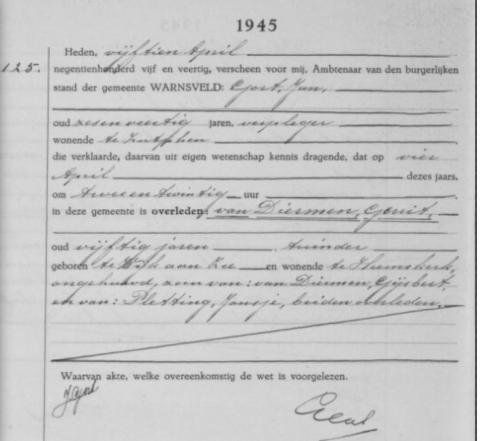 1945
Heden, vijftien April
125.
negentienhonderd vijf en veertig, verscheen voor mij, Ambtenaar van den burgerlijken
stand der gemeente WARNSVELD: Gort, Jan,
oud zesenveertig jaren, verpleger
wonende te Zutphen
die verklaarde, daarvan uit eigen wetenschap kennis dragende, dat op vier
April dezes jaars,
om tweeentwintig uur
in deze gemeente is overleden: van Diermen, Gerrit,
oud vijftig jaren, tuinder
geboren te Wijk aan Zee en wonende te Heemskerk,
ongehuwd, zoon van: van Diermen, Gijsbert,
en van: Pletting, Jansje, beiden overleden.
Waarvan akte, welke overeenkomstig de wet is voorgelezen.
JGort